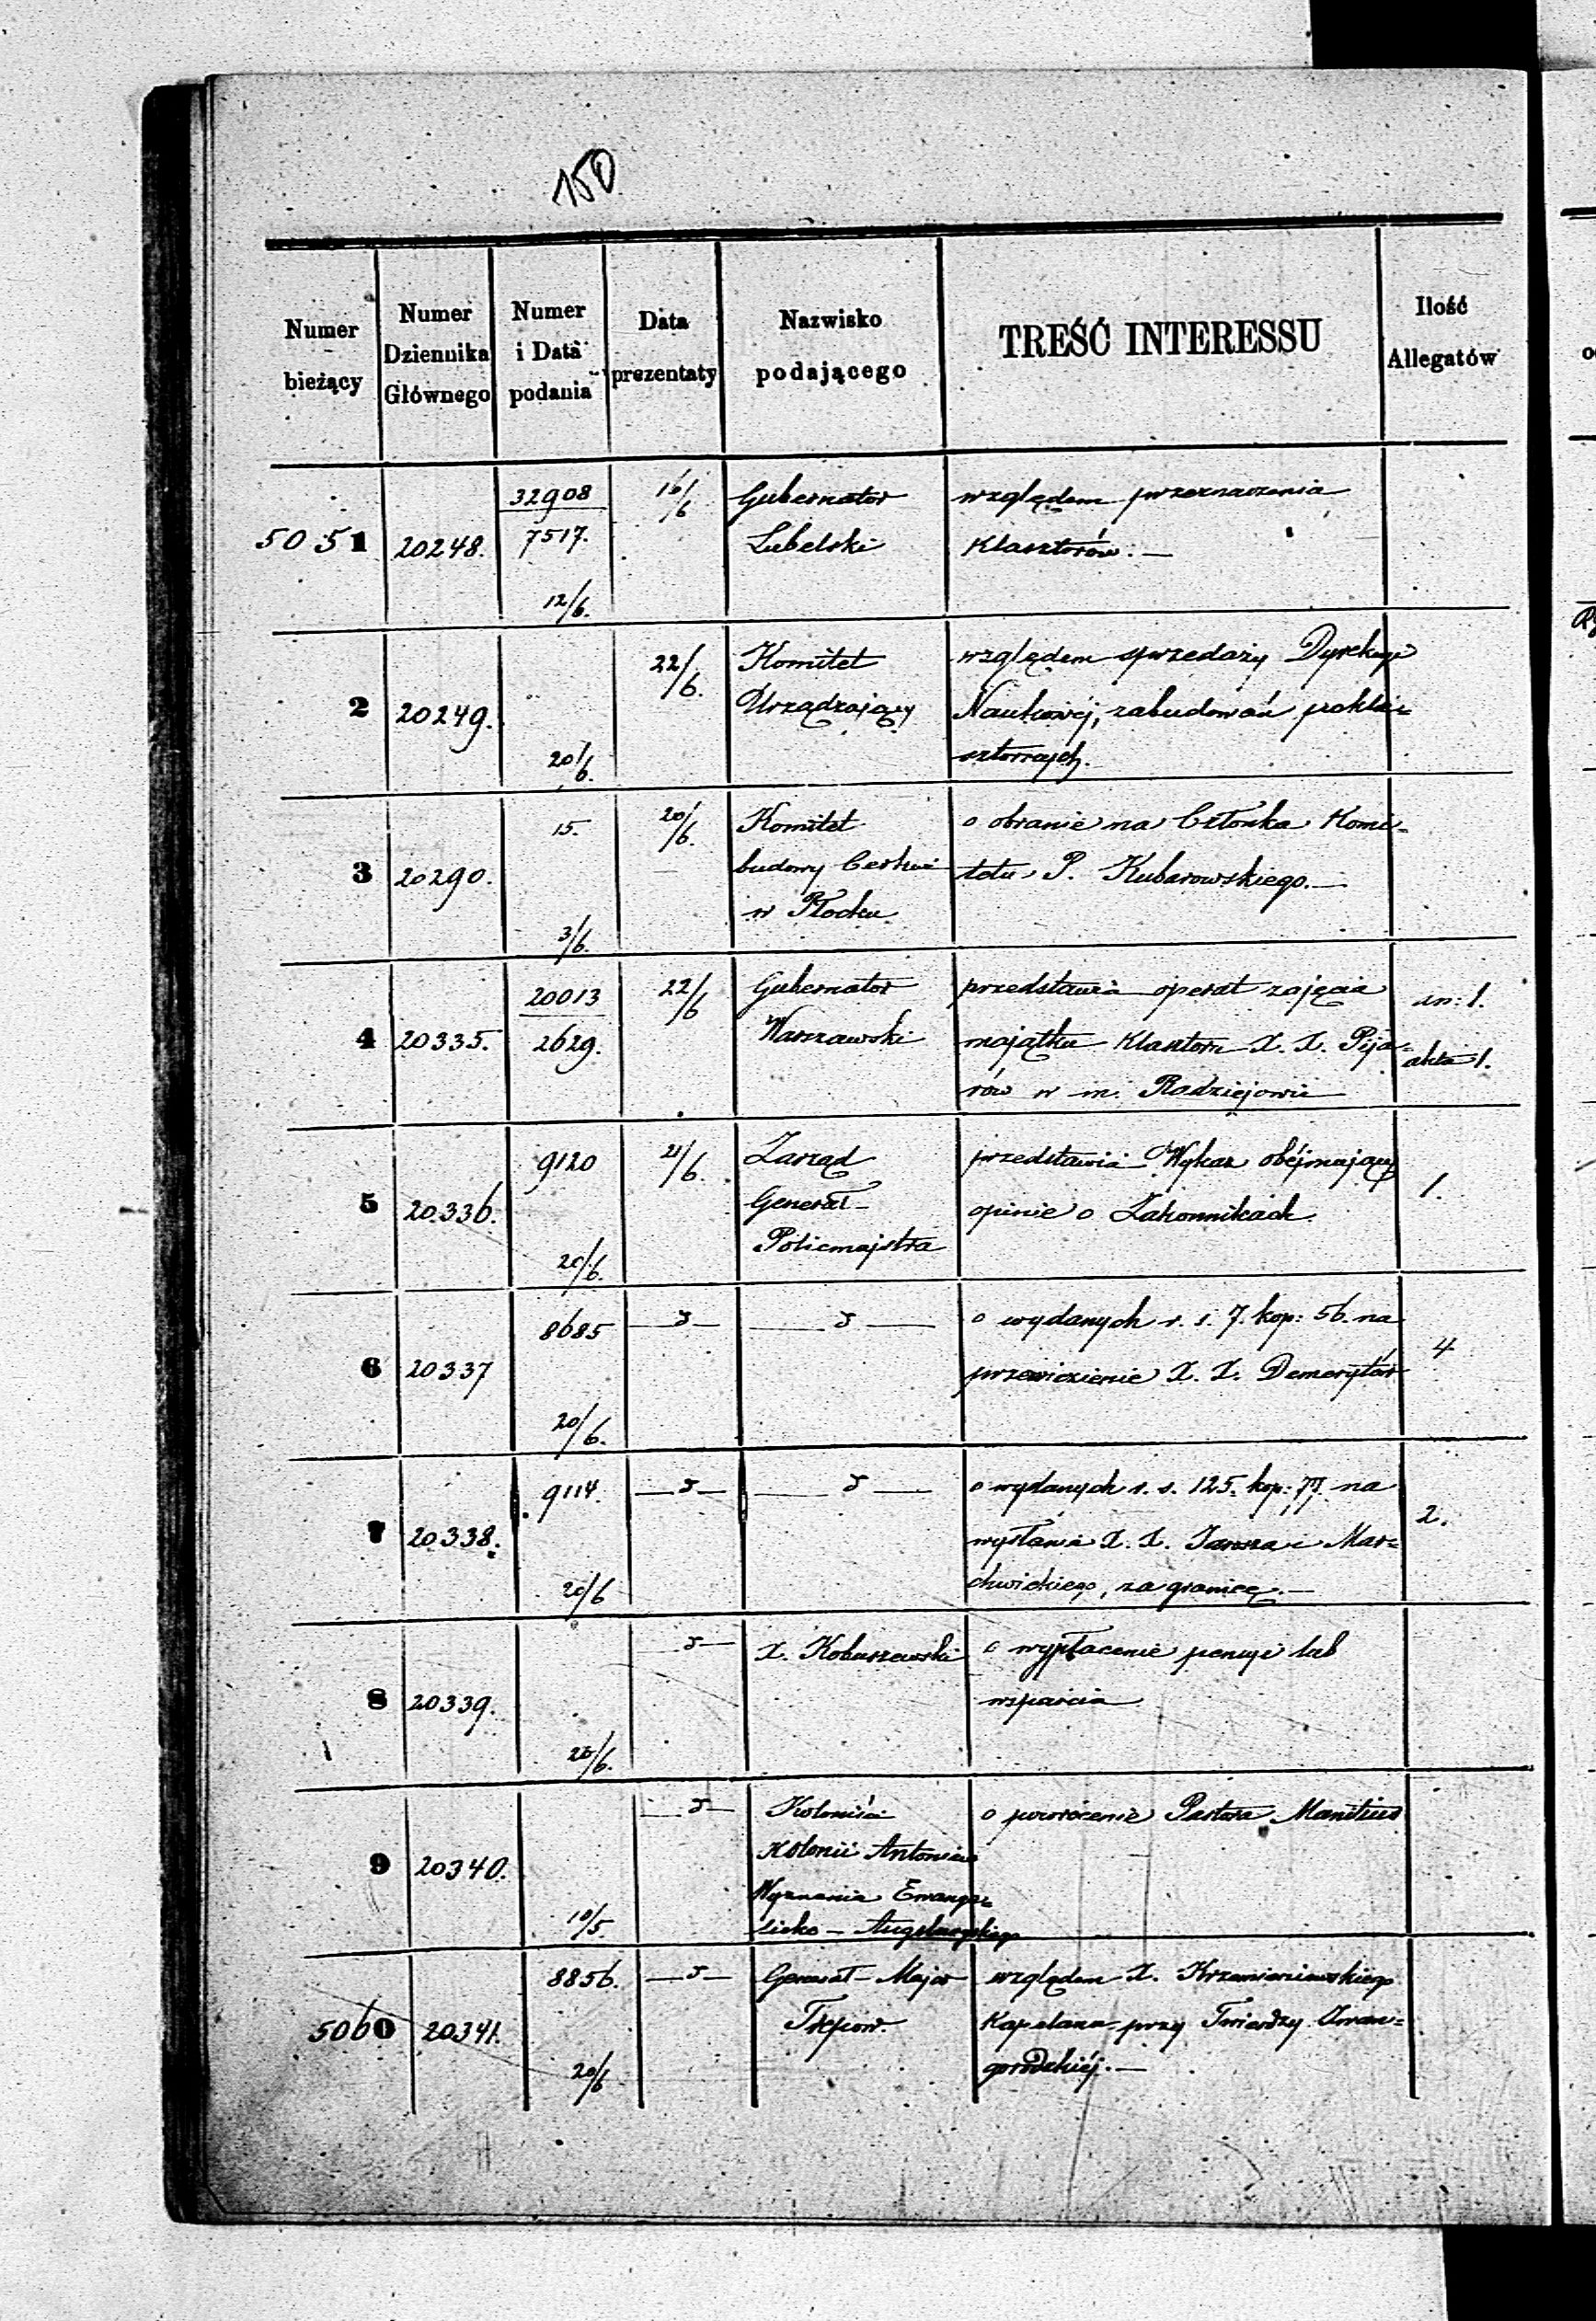 150
Numer bieżący
Numer Dziennika Głównego
Numer i Data podania
Data prezentaty
Nazwisko podającego
TREŚĆ INTERESSU
Ilość Allegatów
5051
20248.
32908
7517.
12/6.
16/6
Gubernator
Lubelski
względem przeznaczenia
Klasztorów. —
2
20249.
20/6.
22/6.
Komitet
Urządzający
względem sprzedaży Dyrekcyi
Naukowej, zabudowań pokla=
sztornych.
3
20290.
15.
3/6.
20/6.
Komitet
budowy Cerkwi
w Płocku
o obranie na Członka Komi=
tetu P. Kubarowskiego. —
4
20335.
20013
2629.
22/6
Gubernator
Warszawski
przedstawia operat zajęcia
majątku Klasztoru X. X. Pija=
rów w m. Radziejowie
an: 1.
akta 1.
5
20336.
9120
20/6.
21/6.
Zarząd
Generał-
Policmajstra
przedstawia Wykaz obéjmujący
opinie o Zakonnikach.
1.
6
20337
8685
20/6.
o wydanych r. s. 7. kop: 56. na
przewiezienie X. X. Demerytów
4
7
20338.
9114.
20/6
o wydanych r. s. 125. kop: 71. na
wysłanie X. X. i Mar=
chwickiego, za granicę. —
2.
8
20339.
20/6.
X. Kobuszewski
o wypłacenie pensyi lub
wsparcia
9
20340.
10/5.
Koloniści
Kolonii Antoniew
Wyznania Ewange=
licko - Augsburskiego
o powrócenie Pastora Manitius
5060
20341.
8856.
20/6
Generał-Major
Trepow.
względem X. Krzemieniewskiego
Kapelana przy Twierdzy Iwan=
gorodzkiéj. —